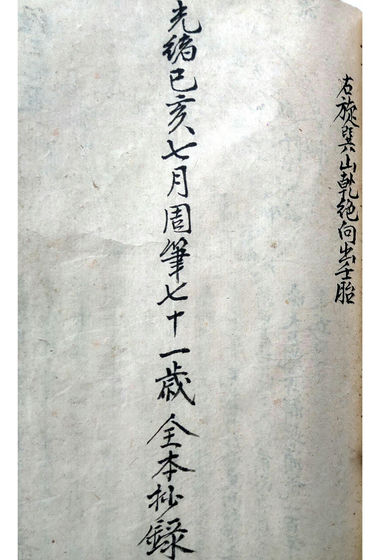 右旋巽山乾绝向出壬胎
光绪己亥七月周筆七十一歲全本抄錄